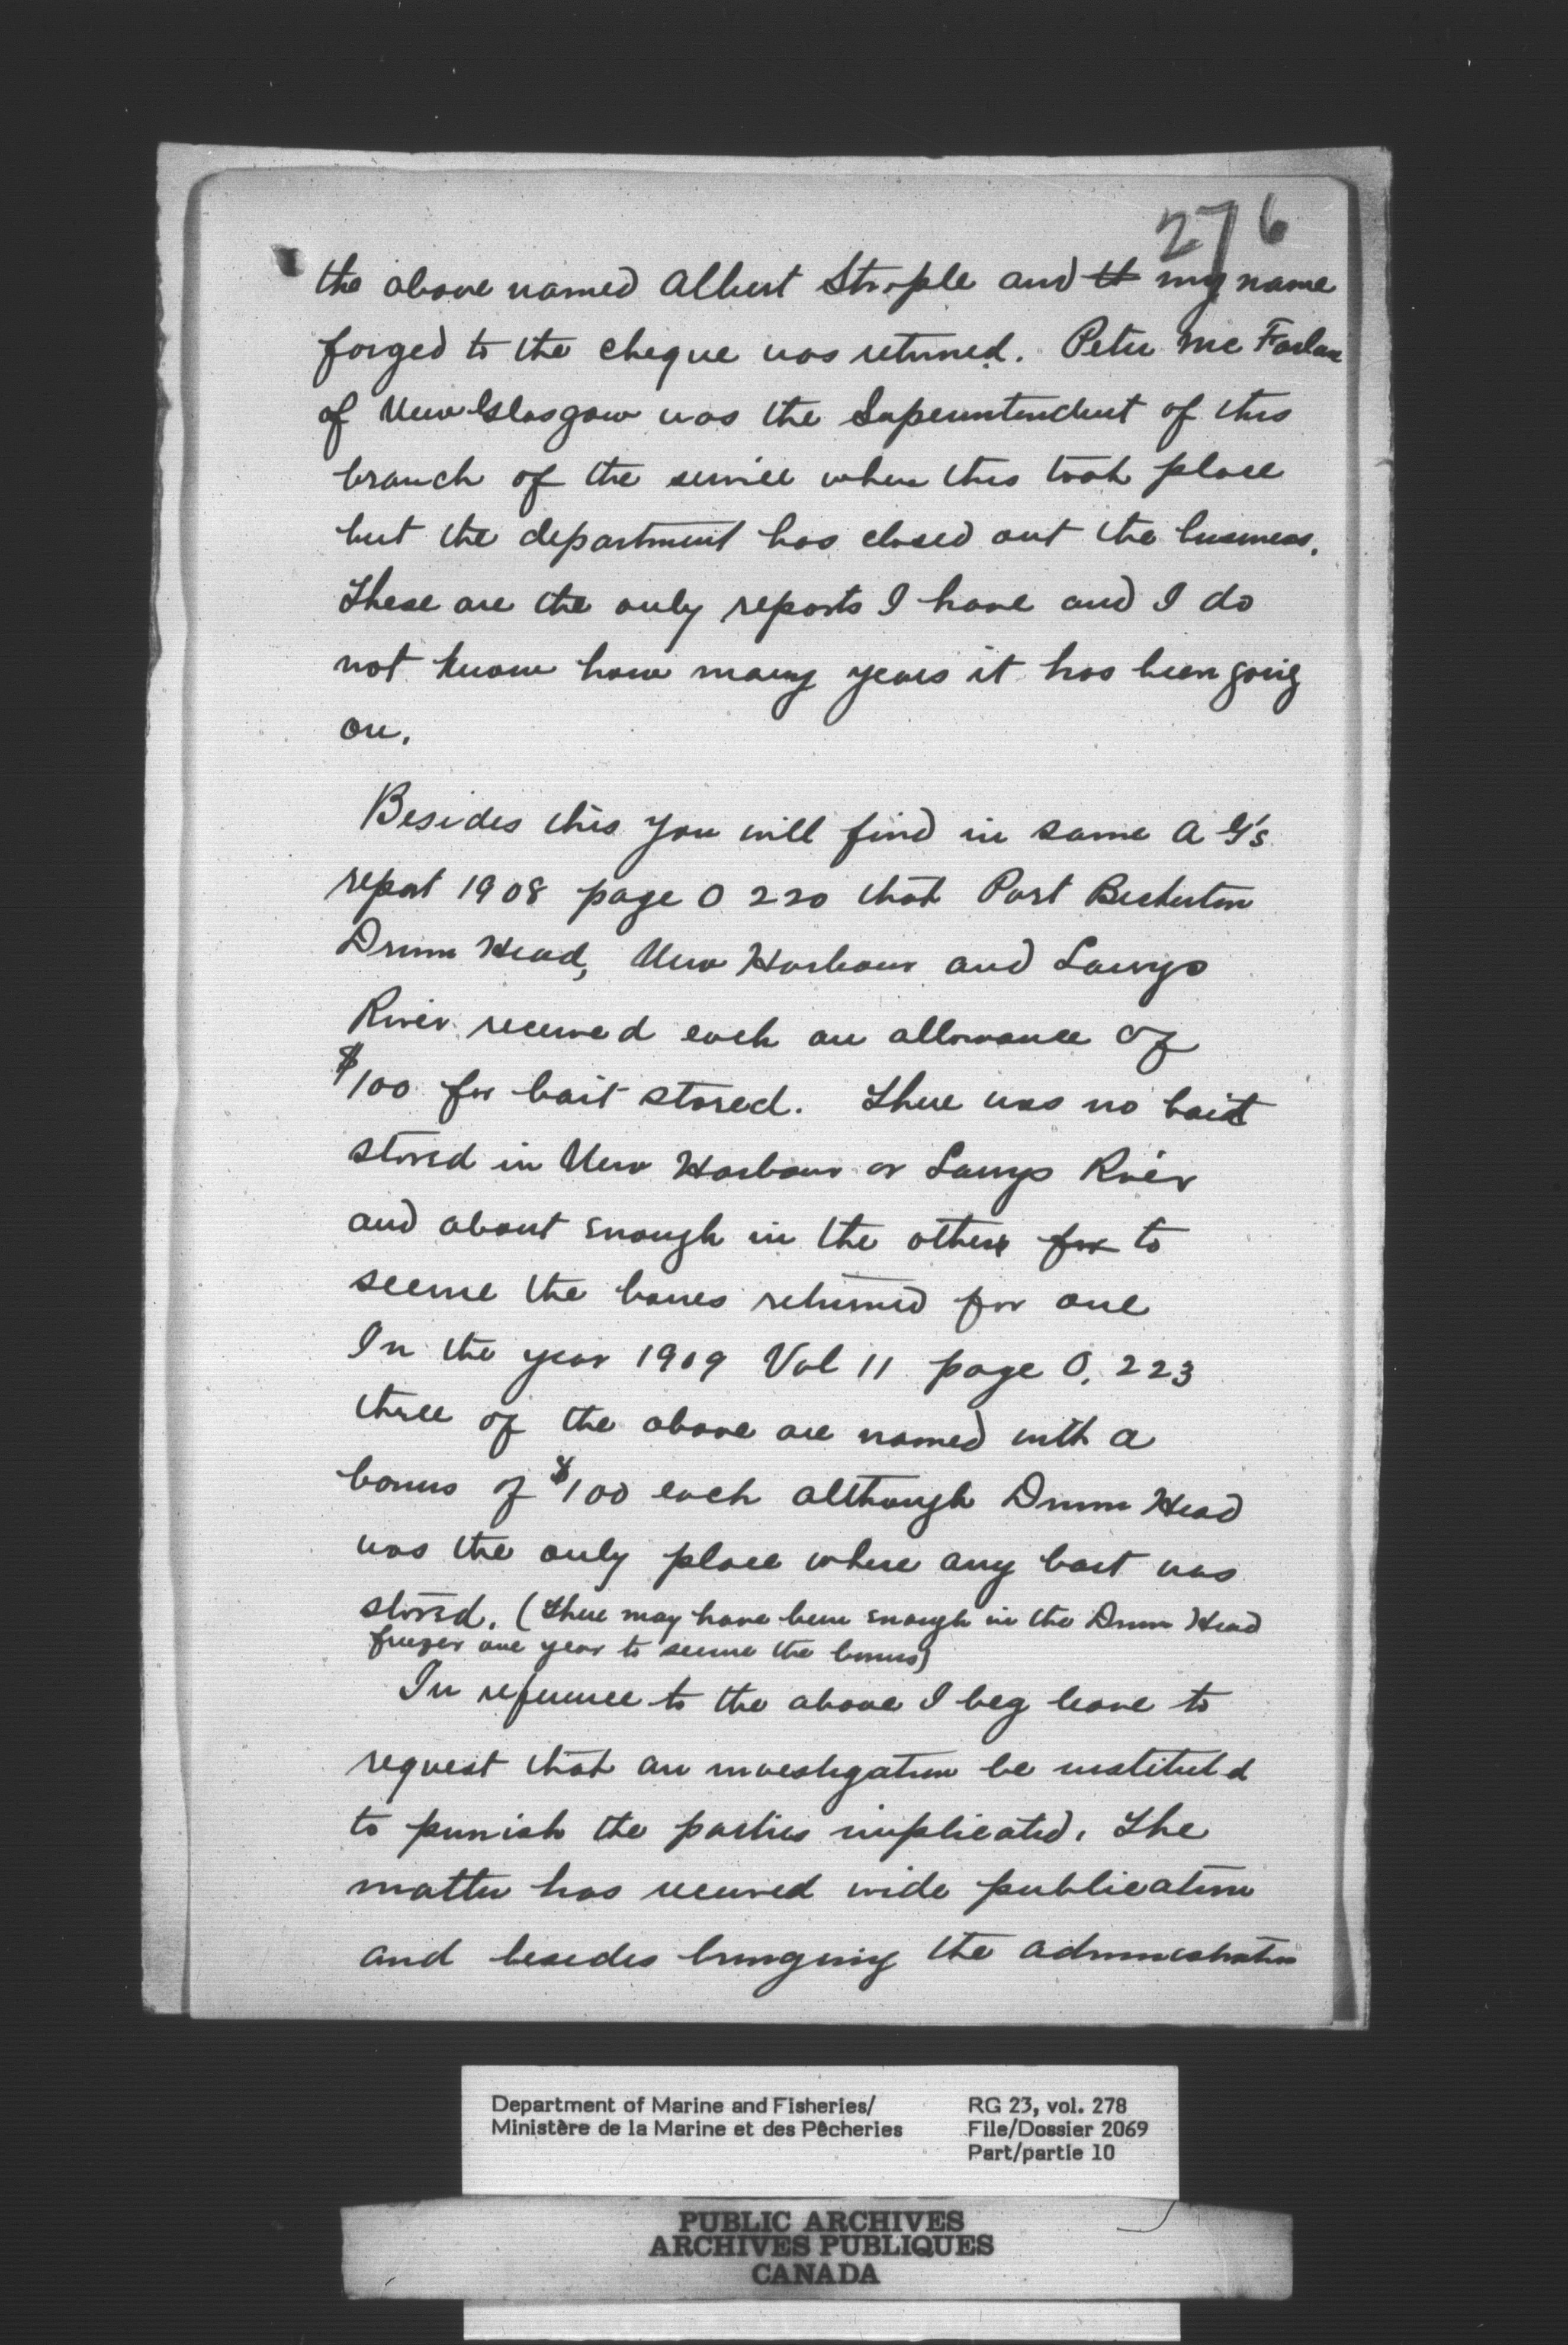 276
the above named Albert Strople and tt my name
forged to the cheque was returned. Peter Mc Farlan
of New Glasgow was the Superintendent of this
branch of the service when this took place
but the department has closed out the business.
These are the only reports I have and I do
not know how many years it has been going
on.
Besides this you will find in same A G's
report 1908 page O 220 that Port Beckerton
Drum Head, New Harbour and Larrys
River received each an allowance of
$100 for bait stored. There was no bait
stored in New Harbour or Larrys River
and about enough in the others for to
secure the bonus returned for one
In the year 1909 Vol 11 page O. 223
three of the above are named with a
bonus of $100 each although Drum Head
was the only place where any bait was
stored. (There may have been enough in the Drum Head
freezer one year to secure the bonus)
In reference to the above I beg leave to
request that an investigation be instituted
to punish the parties implicated. The
matter has received wide publication
and besides bringing the administration
Department of Marine and Fisheries/
Ministère de la Marine et des Pêcheries
RG 23, vol. 278
File/Dossier 2069
Part/partie 10
PUBLIC ARCHIVES
ARCHIVES PUBLIQUES
CANADA